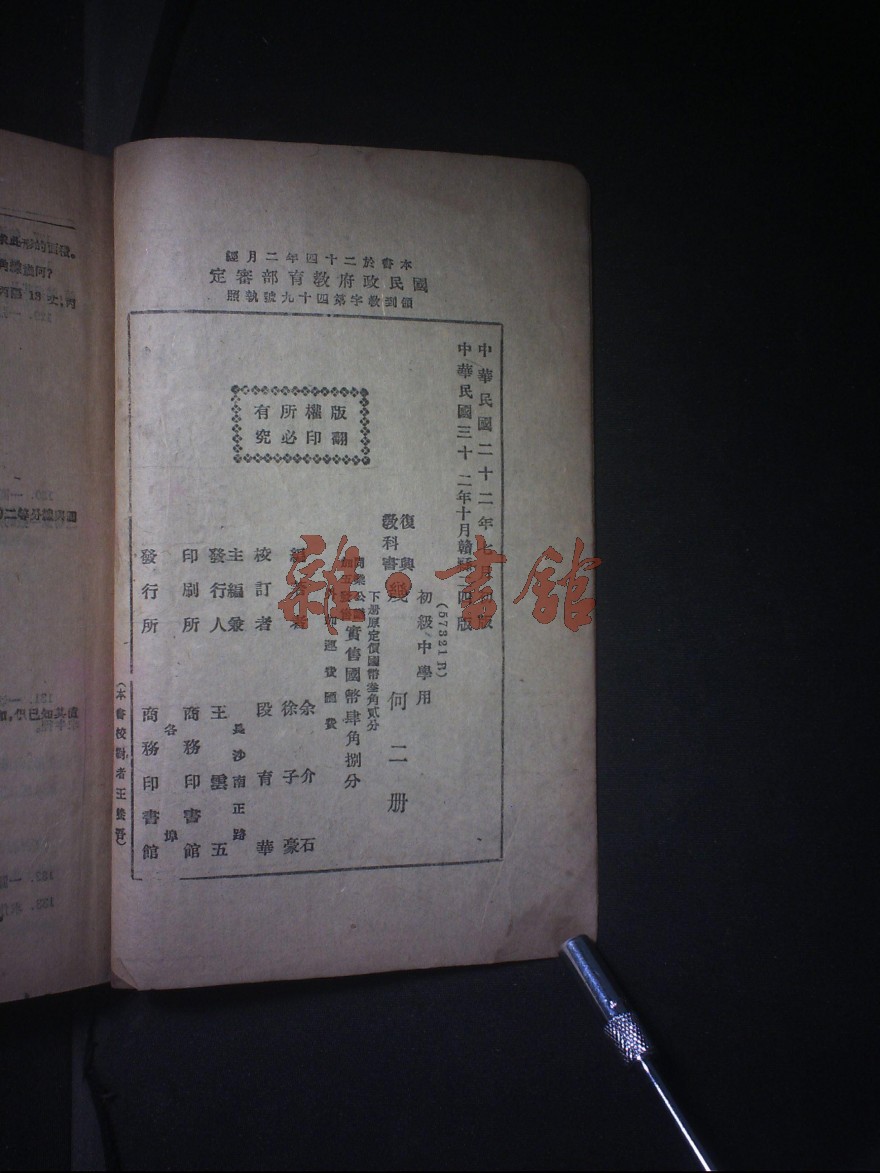 本書於二十四年二月經
國民政府教育部審定
領到教字第四十九號執照
中華民國二十二年七月初版
中華民國三十二年十月贛縣二四版
版權所有
翻印必究
(57321 B)
初級中學用
復興
教科書
幾何二册
下册原定價國幣叁角貳分
實售國幣肆角捌分
外 運費匯費
編著者 余介石
徐子豪
校訂者 段育華
主編兼
發行人 王雲五
長沙南正路
印刷所 商務印書館
各埠
發行所 商務印書館
(本書校對者王 )
雜·書館